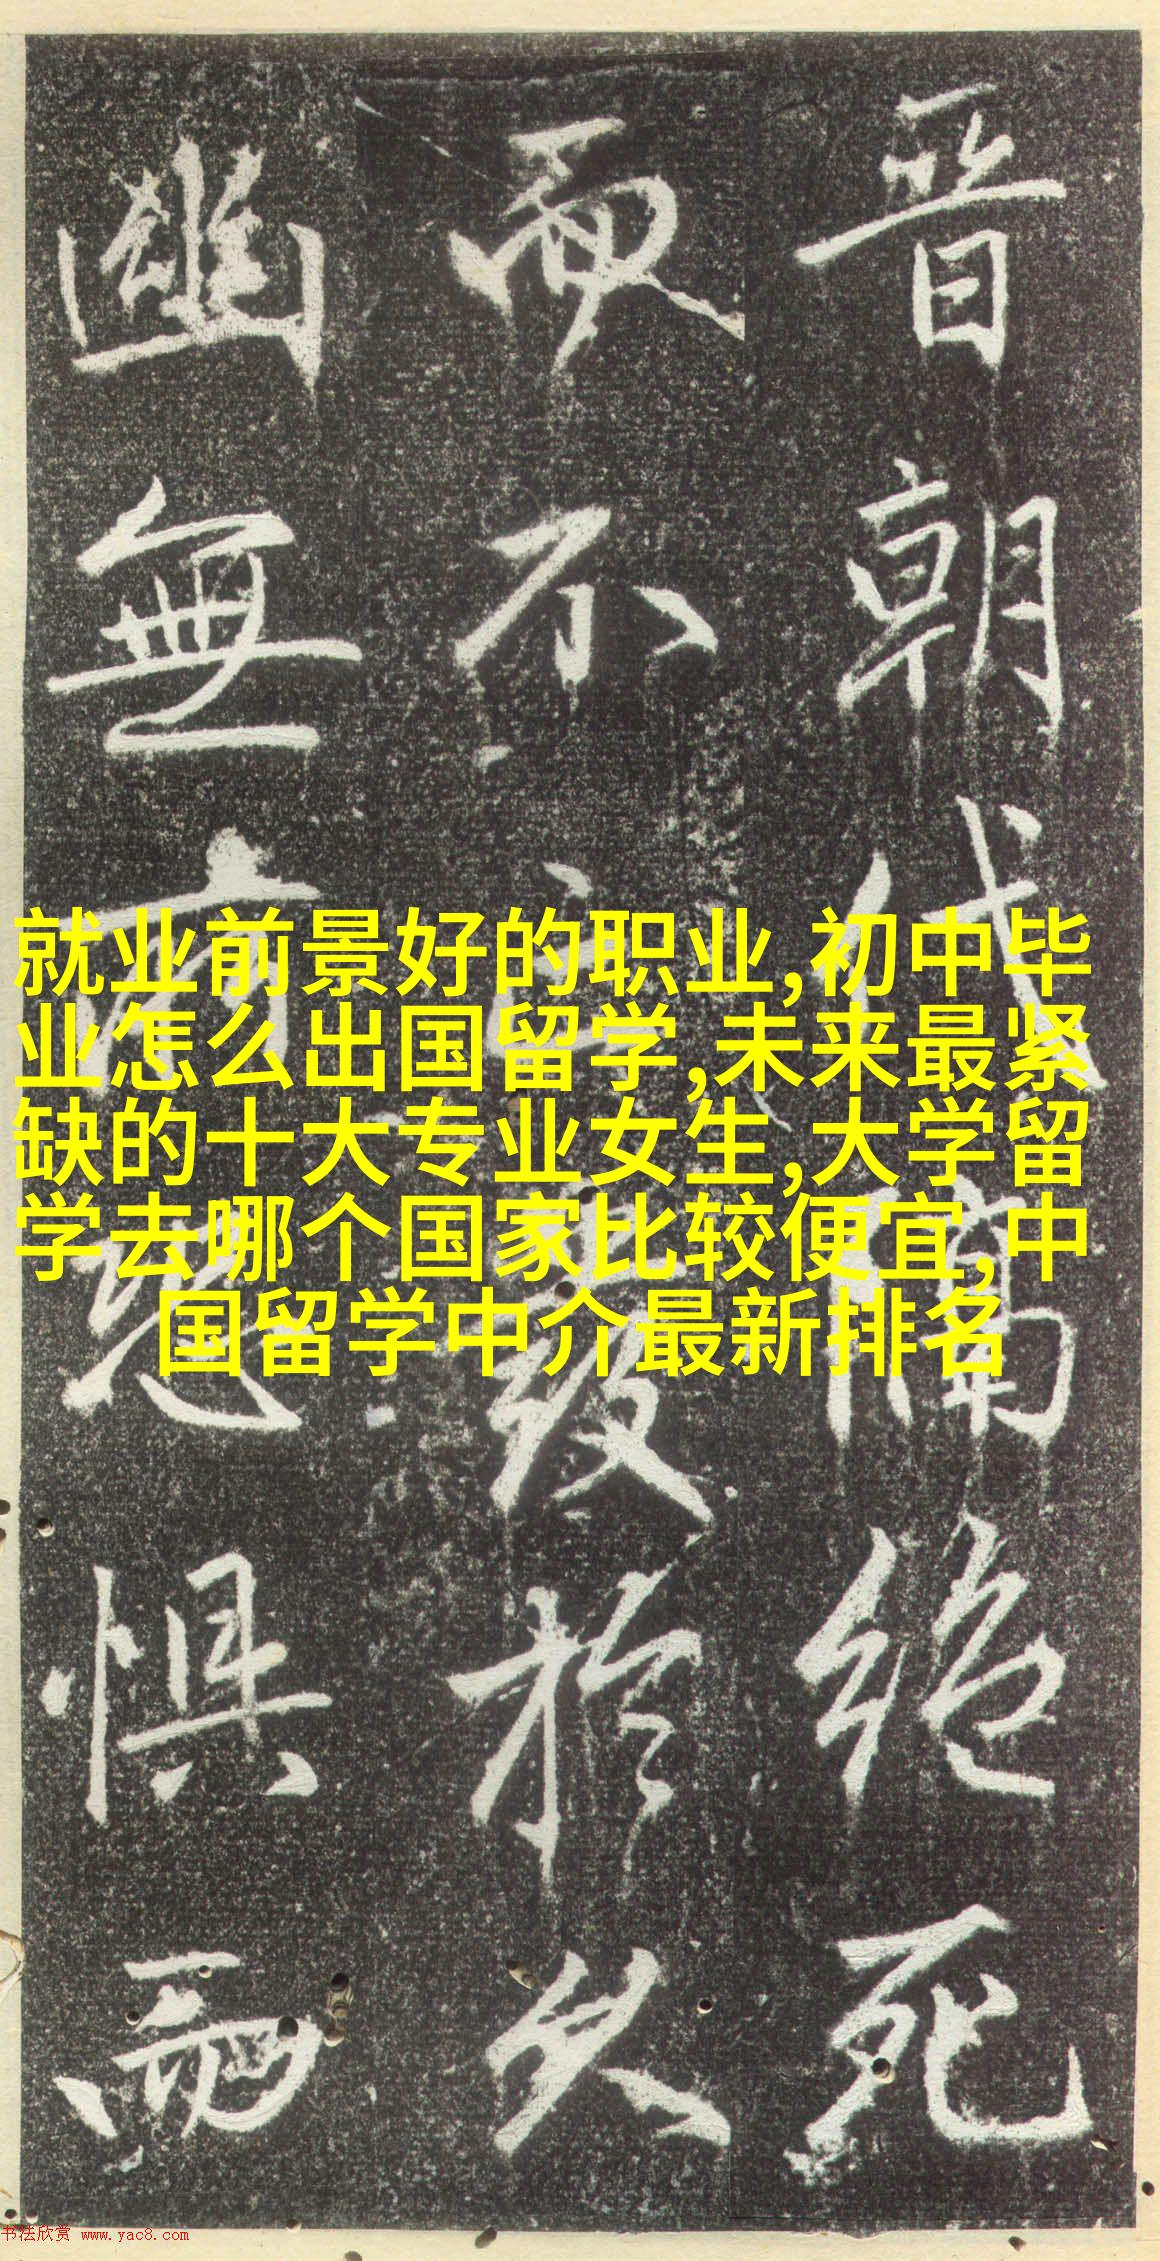 就业前景好的职业,初中毕
业怎么出国留学,未来最紧
缺的十大专业女生,大学留
学去哪个国家比较便宜,中
国留学中介最新排名
晉朝代隔絕死
而不於久
幽無懼而
书法欣赏 www.yac8.com